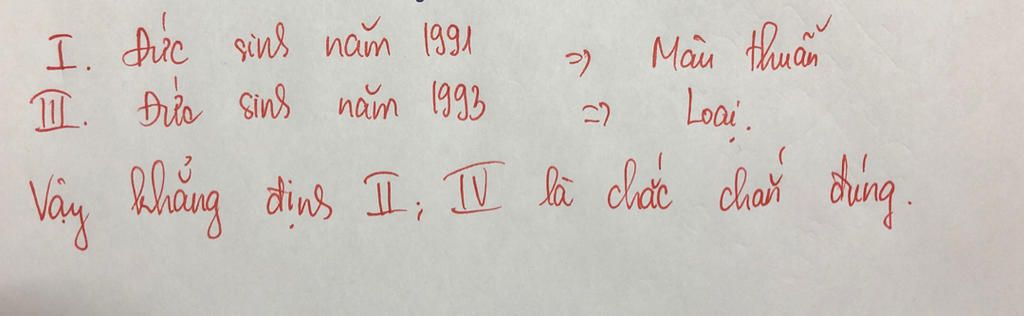 I. Đức sinh năm 1991 => Mâu thuẫn
III. Đức sinh năm 1993 => Loại.
Vậy khẳng định II; IV là chắc chắn đúng.